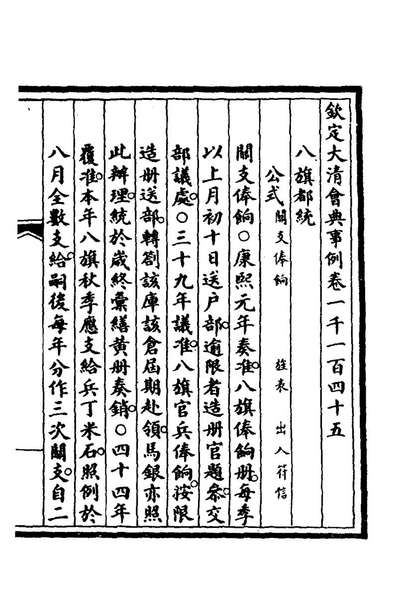 欽定大清會典事例卷一千一百四十五
八旗都統
公式 關支俸餉 旌表 出入符信
關支俸餉○康熙元年奏准八旗俸餉册每季
以上月初十日送户部逾限者造册官題叅交
部議處○三十九年議准八旗官兵俸餉按限
造册送部轉劄該庫該倉屆期赴領馬銀亦照
此辦理統於歲終彙繕黄册奏銷○四十四年
覆准本年八旗秋季應支給兵丁米石照例於
八月全數支給嗣後每年分作三次關支自二